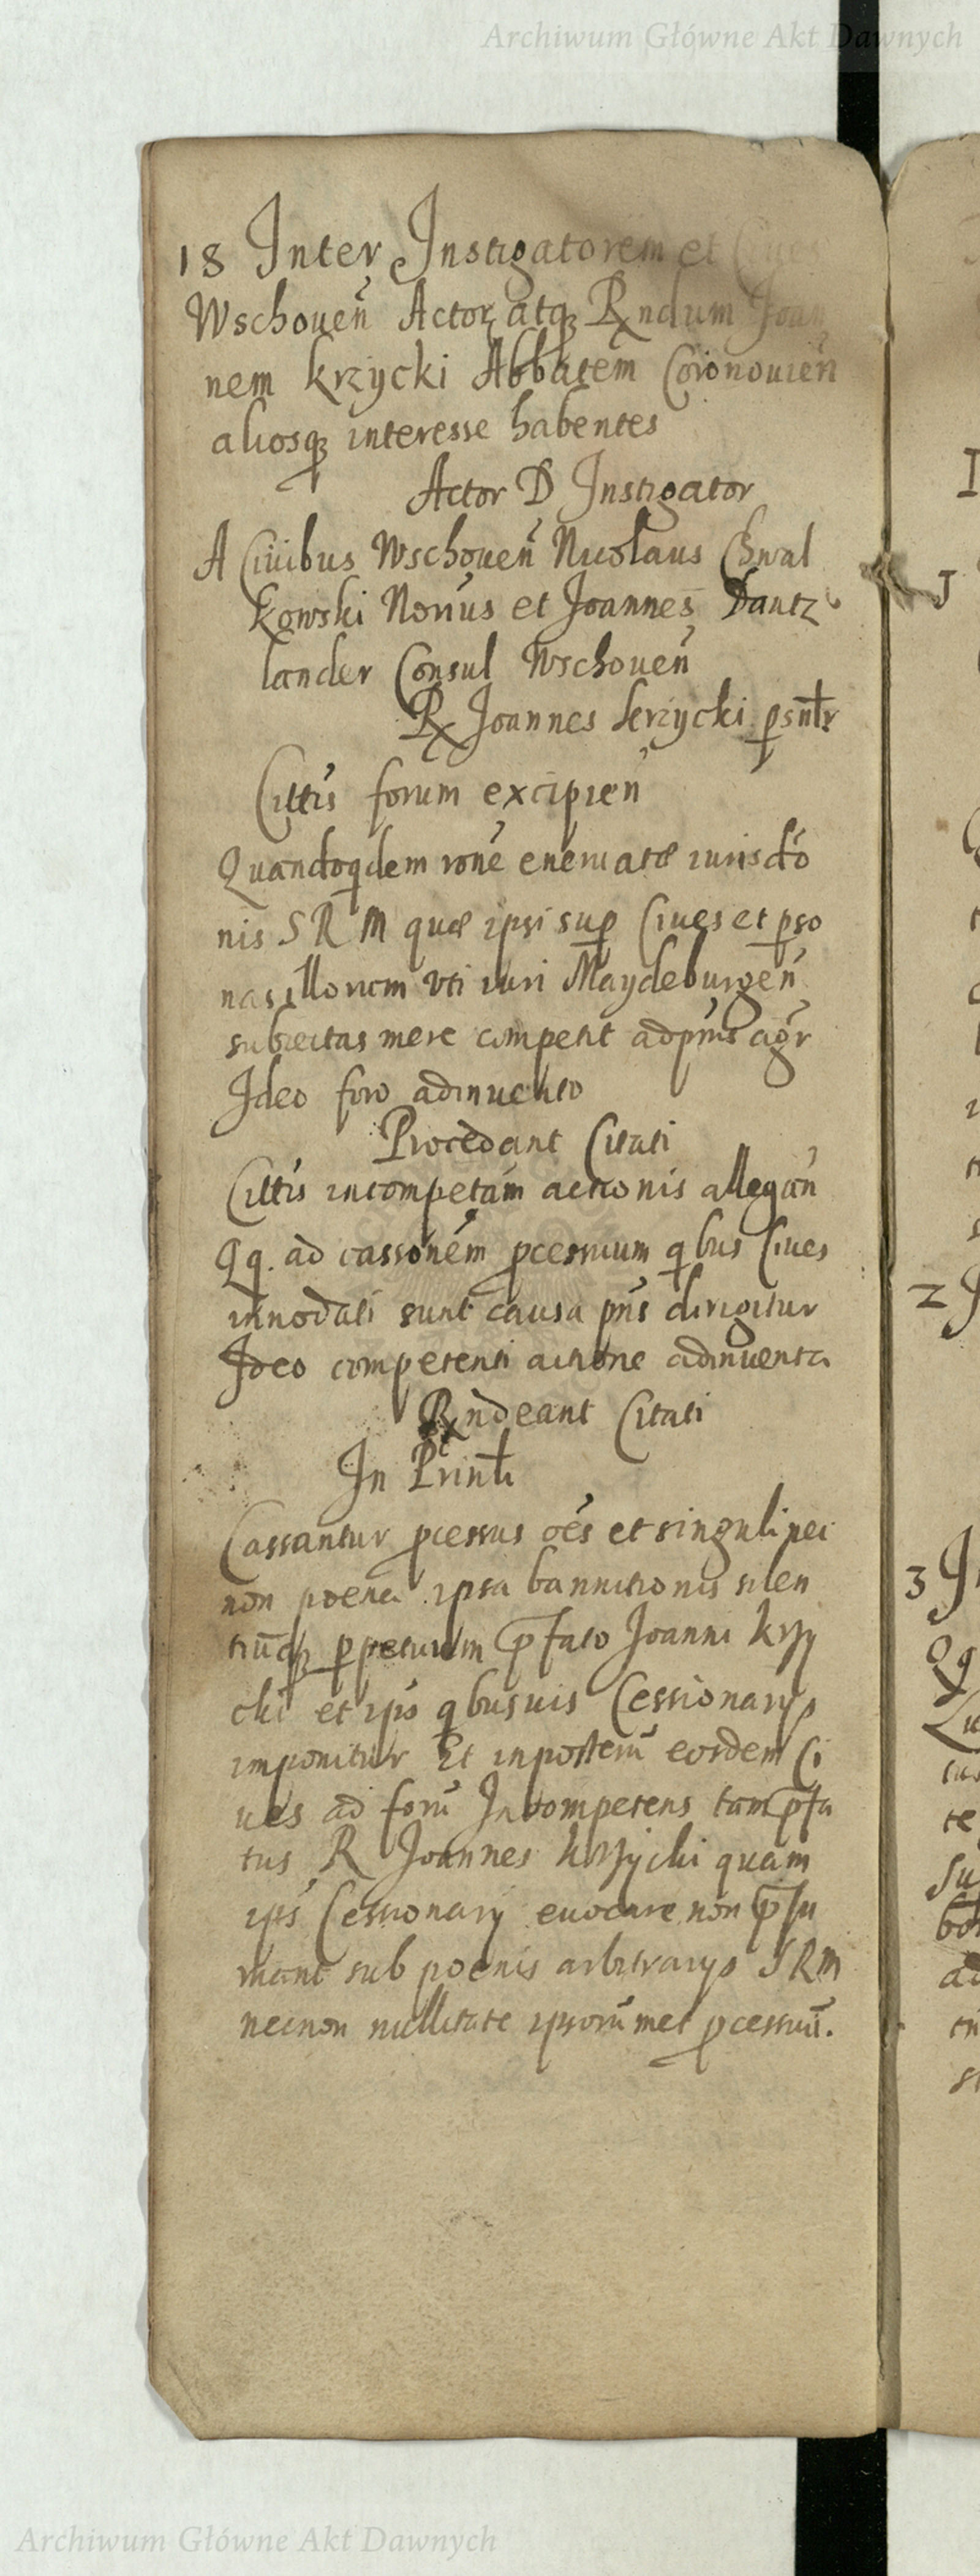 Archiwum Główne Akt Dawnych
18 Inter Instigatorem et Cives
Wschoueñ Actor atq Rndum Joan
nem krzycki Abbatem Coronouieñ
aliosq interesse habentes
Actor D Instigator
A Ciuibus Wschoueñ Nicolaus Chwal
kowski Norius et Joannes Dantz
lander Consul Wschoueñ
R Joannes krzycki psntr
Cittis forum excipien
Quandoqdem rone eneruatæ iurisdto
nis S R M quæ ipsi sup Ciues et pso
nas illorum vti iuri Maydeburgeñ
subiectas mere competit adpñs agr
Ideo foro adinuento
Procedant Citati
Cittis incompetam actionis allegañ
Qq. ad cassonem pcessuum qbus Ciues
innodati sunt causa pñs dirigitur
Ideo competenti actione adinuenta
Rndeant Citati
In Printi
Cassantur pcessus oes et singuli nec
non poena ipsa bannitionis silen
tiuq ppetuum pfato Joanni krzy
cki et ips qbusuis Cessionarijs
imponitur Et inposterū eosdem Ci
ues ad forū Incompetens tam pfa
tus R Joannes krzycki quam
ips Cessionarij euocare non psu
mant sub poenis arbitrarijs S R M
necnon nullitate ipsorūmet pcessuū.
I
J
2
3
Archiwum Główne Akt Dawnych